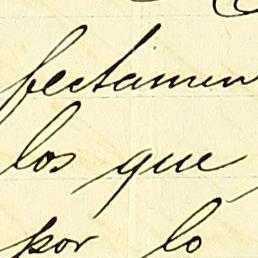 fectamen
los que
por lo